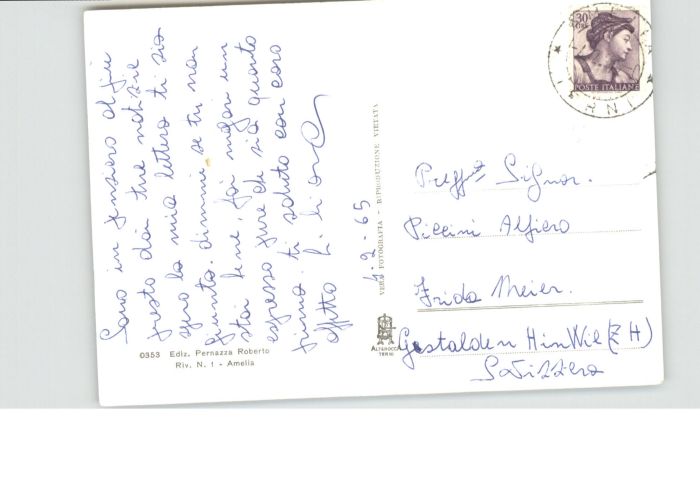 Sono in pensiero al più
presto dai tue notizie
spero la mia lettera ti sia
giunta. dimmi se tu non
stai bene, fai magari un
espresso pure di sia quanto
prima. ti saluto con caro
affetto
4-2-65
VERA FOTOGRAFIA - RIPRODUZIONE VIETATA
0353 Ediz. Pernazza Roberto
Riv. N. 1 - Amelia
30
LIRE
POSTE ITALIANE
TERNI
Signor.
Piccini Alfiero
Frida Meier.
Gestalden HinWil (ZH)
Svizzera
ALTEROCCA
TERNI